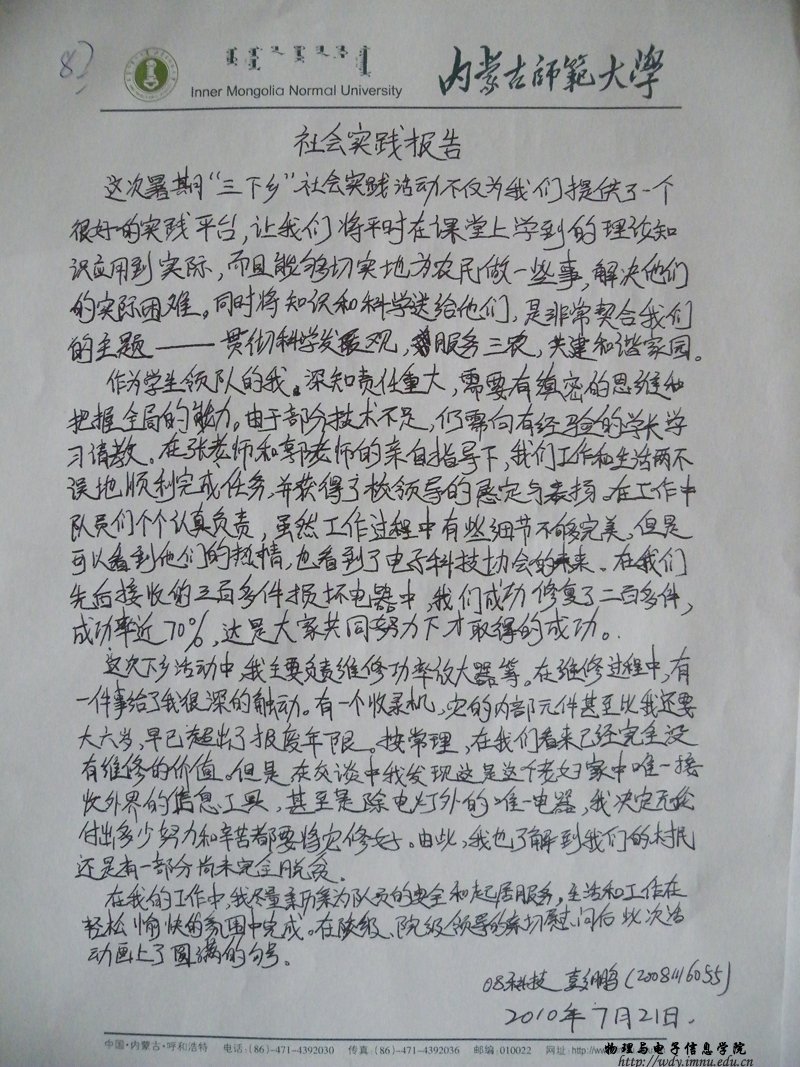 83
Inner Mongolia Normal University
内蒙古師範大學
社会实践报告
这次暑期"三下乡"社会实践活动不仅为我们提供了一个
很好的实践平台,让我们将平时在课堂上学到的理论知
识应用到实际,而且能够切实地为农民做一些事,解决他们
的实际困难。同时将知识和科学送给他们,是非常契合我们
的主题——贯彻科学发展观,服务三农,共建和谐家园。
作为学生领队的我。深知责任重大,需要有缜密的思维和
把握全局的能力。由于部分技术不足,仍需向有经验的学长学
习请教。在张老师和郭老师的亲自指导下,我们工作和生活两不
误地顺利完成任务,并获得了校领导的肯定与表扬。在工作中
队员们个个认真负责,虽然工作过程中有些细节不够完美,但是
可以看到他们的热情,也看到了电子科技协会的未来。在我们
先后接收的三百多件损坏电器中,我们成功修复了二百多件,
成功率近70%,这是大家共同努力下才取得的成功。
这次下乡活动中,我主要负责维修功率放大器等。在维修过程中,有
一件事给了我很深的触动。有一个收录机,它的内部元件甚至比我还要
大六岁,早已超出了报废年限。按常理,在我们看来已经完全没
有维修的价值。但是在交谈中我发现这是这个老妇家中唯一接
收外界的信息工具,甚至是除电灯外的唯一电器,我决定无论
付出多少努力和辛苦都要将它修好。由此,我也了解到我们的村民
还是有一部分尚未完全脱贫。
在我的工作中,我尽量亲历亲为队员的安全和起居服务,生活和工作在
轻松愉快的氛围中完成。在校级、院级领导的亲切慰问后此次活
动画上了圆满的句号。
08科技 彭鹏(2008116055)
2010年7月21日.
中国·内蒙古·呼和浩特 电话:(86)-471-4392030 传真:(86)-471-4392036 邮编:010022 网址:http://www.
物理与电子信息学院
http://wdy.imnu.edu.cn